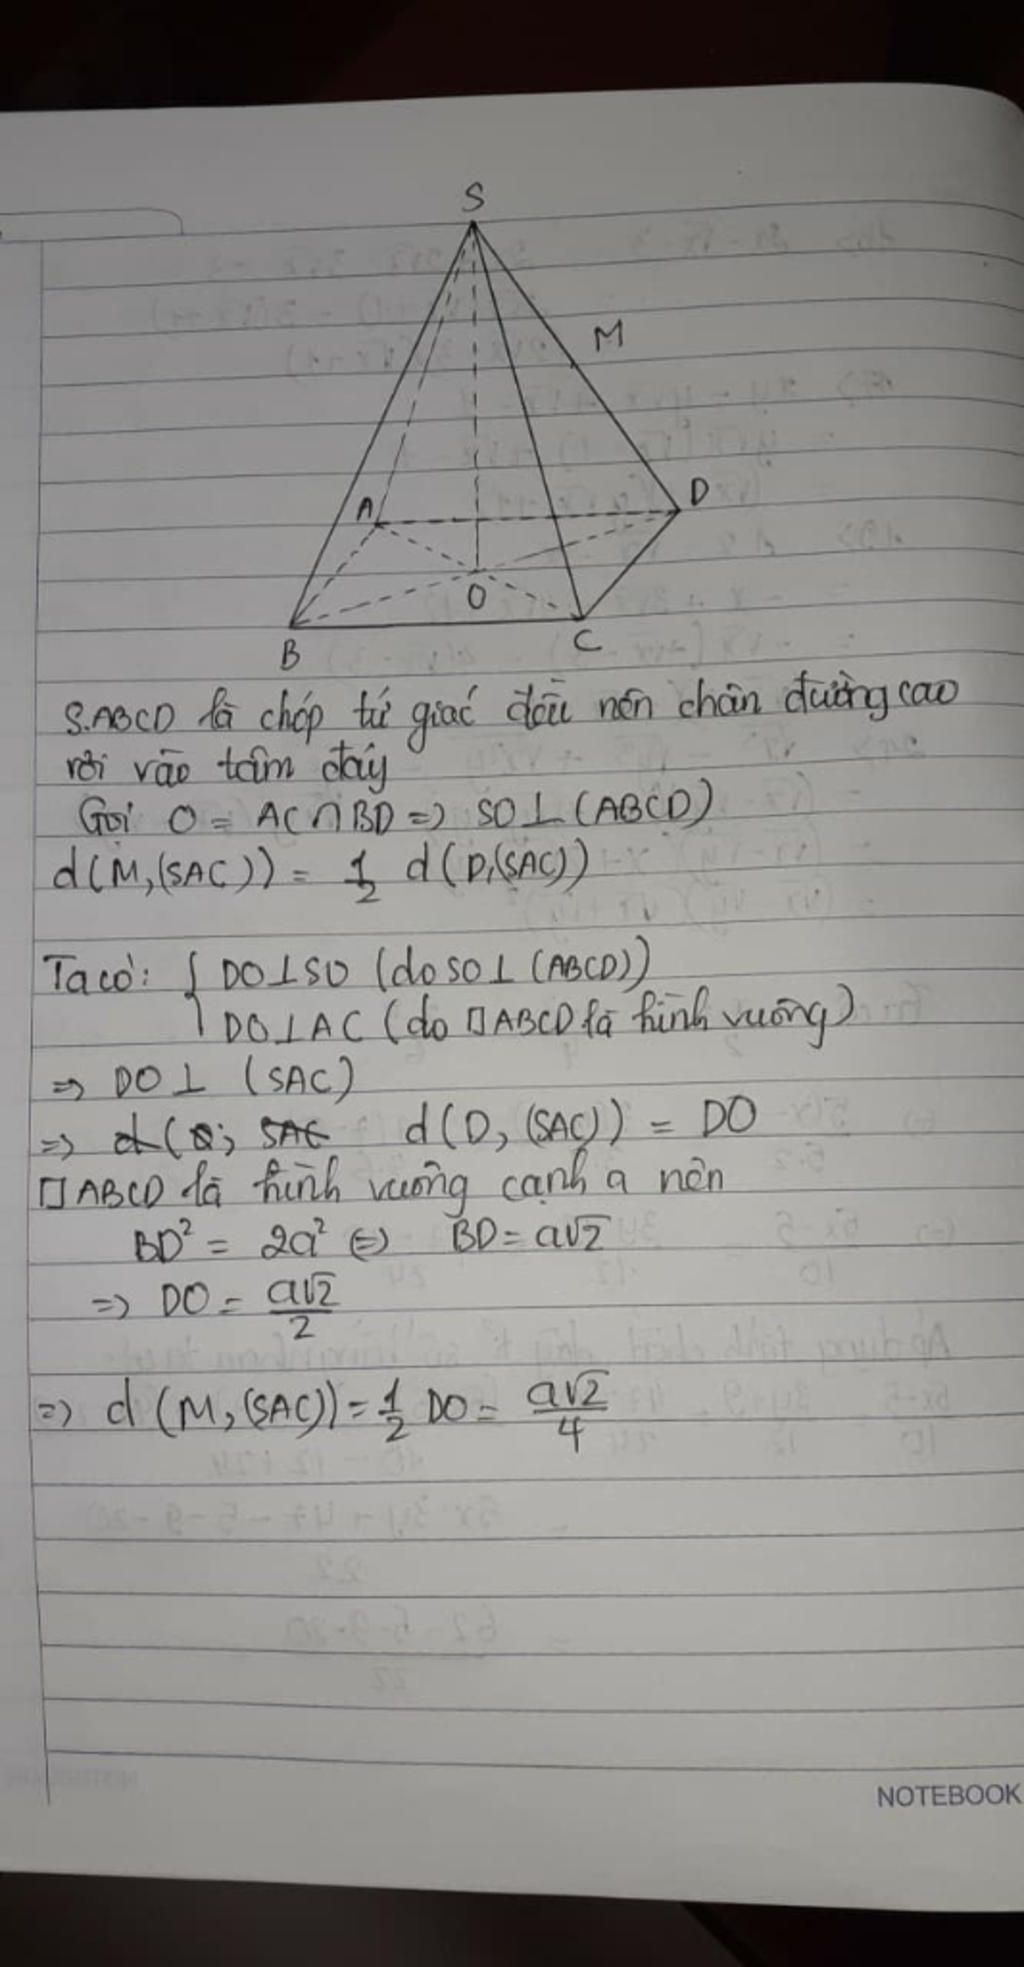 S
M
A
D
O
B
C
S.ABCD là chóp tứ giác đều nên chân đường cao
rơi vào tâm đáy
Gọi O = AC ∩ BD => SO ⊥ (ABCD)
d(M,(SAC)) = 1/2 d(D,(SAC))
Ta có: { DO ⊥ SO (do SO ⊥ (ABCD))
DO ⊥ AC (do □ABCD là hình vuông)
=> DO ⊥ (SAC)
=> d(D, (SAC)) = DO
□ABCD là hình vuông cạnh a nên
BD² = 2a² <=> BD = a√2
=> DO = a√2/2
=> d(M,(SAC)) = 1/2 DO = a√2/4
NOTEBOOK